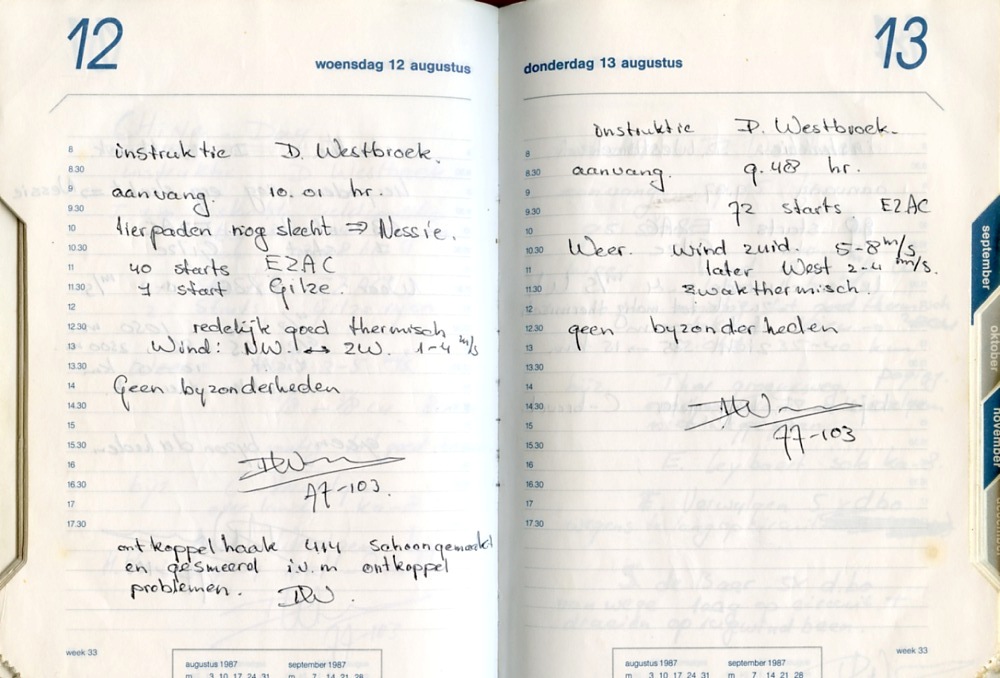 12
woensdag 12 augustus
8 instruktie D. Westbroek.
8.30
9 aanvang. 10.01 hr.
9.30
10 lierpaden nog slecht ⇒ Nessie.
10.30
11 40 starts EZAC
11.30 1 start Gilze.
12
12.30 redelijk goed thermisch
13 Wind: NW. ↔ ZW. 1-4 m/s
13.30
14 Geen byzonderheden
14.30
15
15.30
16 DW
16.30 A7-103.
17
17.30
ontkoppelhaak 414 schoongemaakt
en gesmeerd i.v.m ontkoppel
problemen. DW.
week 33
augustus 1987 september 1987
m 3 10 17 24 31 m 7 14 21 28
13
donderdag 13 augustus
instruktie D. Westbroek.
8
8.30 aanvang. 9.48 hr.
9
9.30 72 starts EZAC
10
10.30 Weer. wind zuid. 5-8 m/s
11 later West 2-4 m/s.
11.30 zwakthermisch.
12
12.30 geen byzonderheden
13
13.30
14
14.30 DW
15 A7-103
15.30
16
16.30
17
17.30
week 33
augustus 1987 september 1987
m 3 10 17 24 31 m 7 14 21 28
september
oktober
november